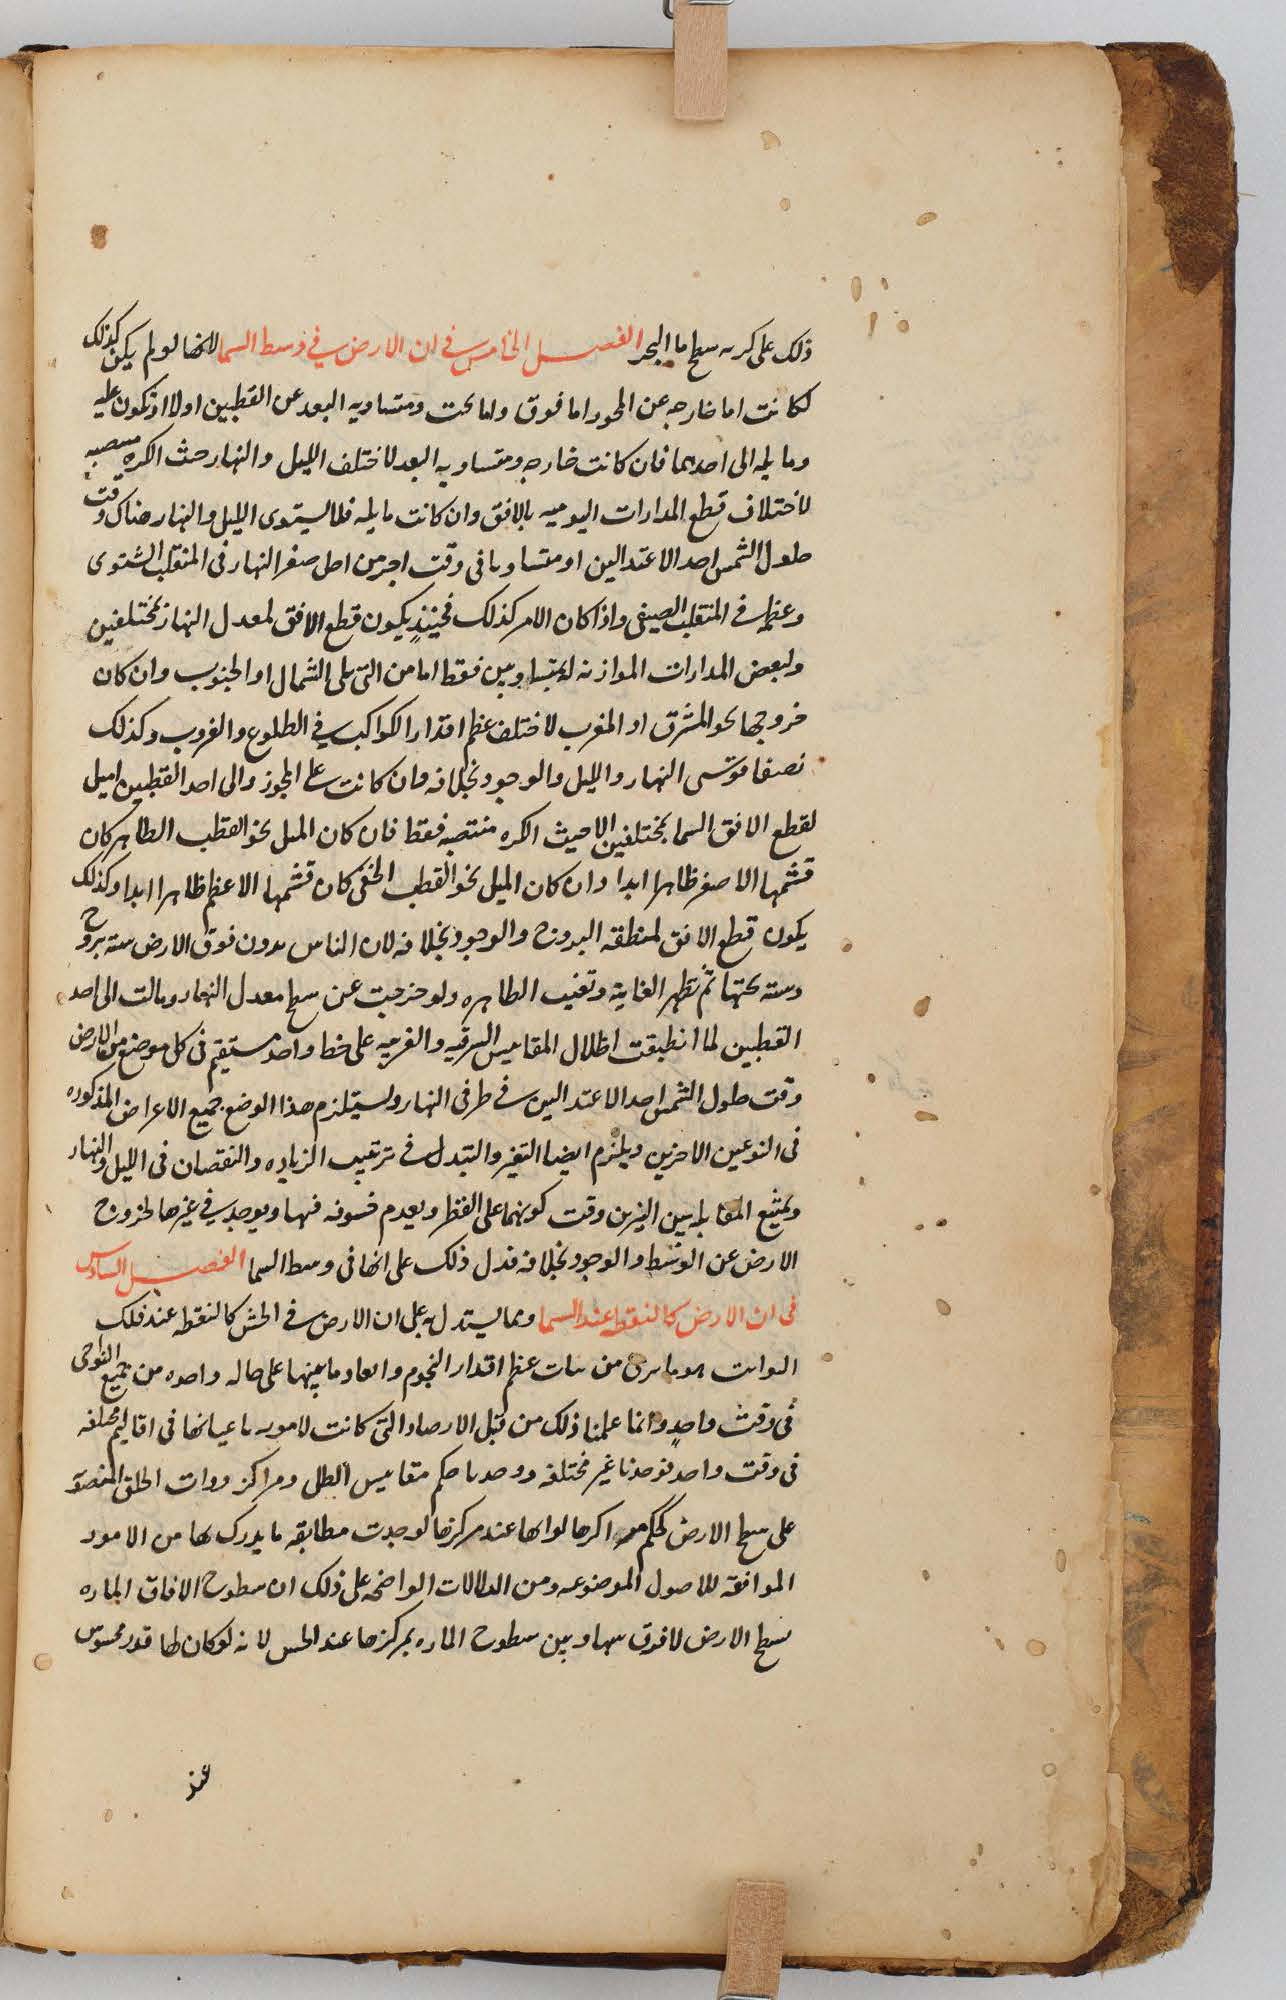 ذلك على كريه سطح ما البحر الفصل الخامس في ان الارض في وسط السما لانها لو لم يكن كذلك
لكانت اما خارجه عن المحور اما فوق واما تحت ومتساويه البعد عن القطبين او لا او تكون عليه
ومايله الى احديهما فان كانت خارجه ومتساويه البعد لاختلف الليل والنهار حيث الكره منتصبه
لاختلاف قطع المدارات اليوميه بالافق وان كانت مايله فلا يستوى الليل والنهار هناك وقت
حلول الشمس احد الاعتدالين او متساويا فى وقت اخر من اجل صغر النهار فى المنقلب الشتوى
وعظمه في المنقلب الصيفى واذا كان الامر كذلك فحينئذ يكون قطع الافق لمعدل النهار بمختلفين
ولبعض المدارات الموازنه له بمتساويين فقط اما من التى تلى الشمال او الجنوب وان كان
خروجها نحو المشرق او المغرب لاختلف عظم اقدار الكواكب في الطلوع والغروب وكذلك
نصفا قوتسى النهار والليل والوجود بخلافه وان كانت على المحور والى احد القطبين اميل
لقطع الافق السما بمختلفين الا حيث الكره منتصبه فقط فان كان الميل نحو القطب الظاهر كان
قسمها الاصغر ظاهرا ابدا وان كان الميل نحو القطب الخفى كان قسمها الاعظم ظاهرا ابدا وكذلك
يكون قطع الافق لمنطقه البروج والوجود بخلافه لان الناس يرون فوق الارض سته بروج
وسته تحتها ثم تظهر الغايبه وتغيب الظاهره ولو خرجت عن سطح معدل النهار ومالت الى احد
القطبين لما انطبقت اظلال المقاييس الشرقيه والغربيه على خط واحد مستقيم فى كل موضع من الارض
وقت حلول الشمس احد الاعتدالين في طرفى النهار ويستلزم هذا الوضع جميع الاعراض المذكوره
فى النوعين الاخرين ويلزم ايضا التغير والتبدل في ترتيب الزياده والنقصان فى الليل والنهار
ويمتنع المقابله بين النيرين وقت كونهما على القطر ويعدم خسوفه فيها ويوجد في غيرها لخروج
الارض عن الوسط والوجود بخلافه فدل ذلك على انها فى وسط السما الفصل السادس
فى ان الارض كالنقطه عند السما ومما يستدل به على ان الارض في الحس كالنقطه عند فلك
الثوابت هو ما يرى من ثبات عظم اقدار النجوم وابعاد ما بينها على حاله واحده من جميع النواحى
فى وقت واحد وانما علمنا ذلك من قبل الارصاد التى كانت لامور باعيانها فى اقاليم مختلفه
فى وقت واحد فوجدنا غير مختلفه ووجدنا حكم مقاييس الظل ومراكز ذوات الحلق المنصوبه
على سطح الارض كحكم مراكزها لو انها عند مركزها لوجدت مطابقه ما يدرك بها من الامور
الموافقه للاصول الموضوعه ومن الدلالات الواضحه على ذلك ان سطوح الافاق الماره
بسطح الارض لا فرق بينها وبين سطوح الماره بمركزها عند الحس لانه لو كان لها قدر محسوس
عند